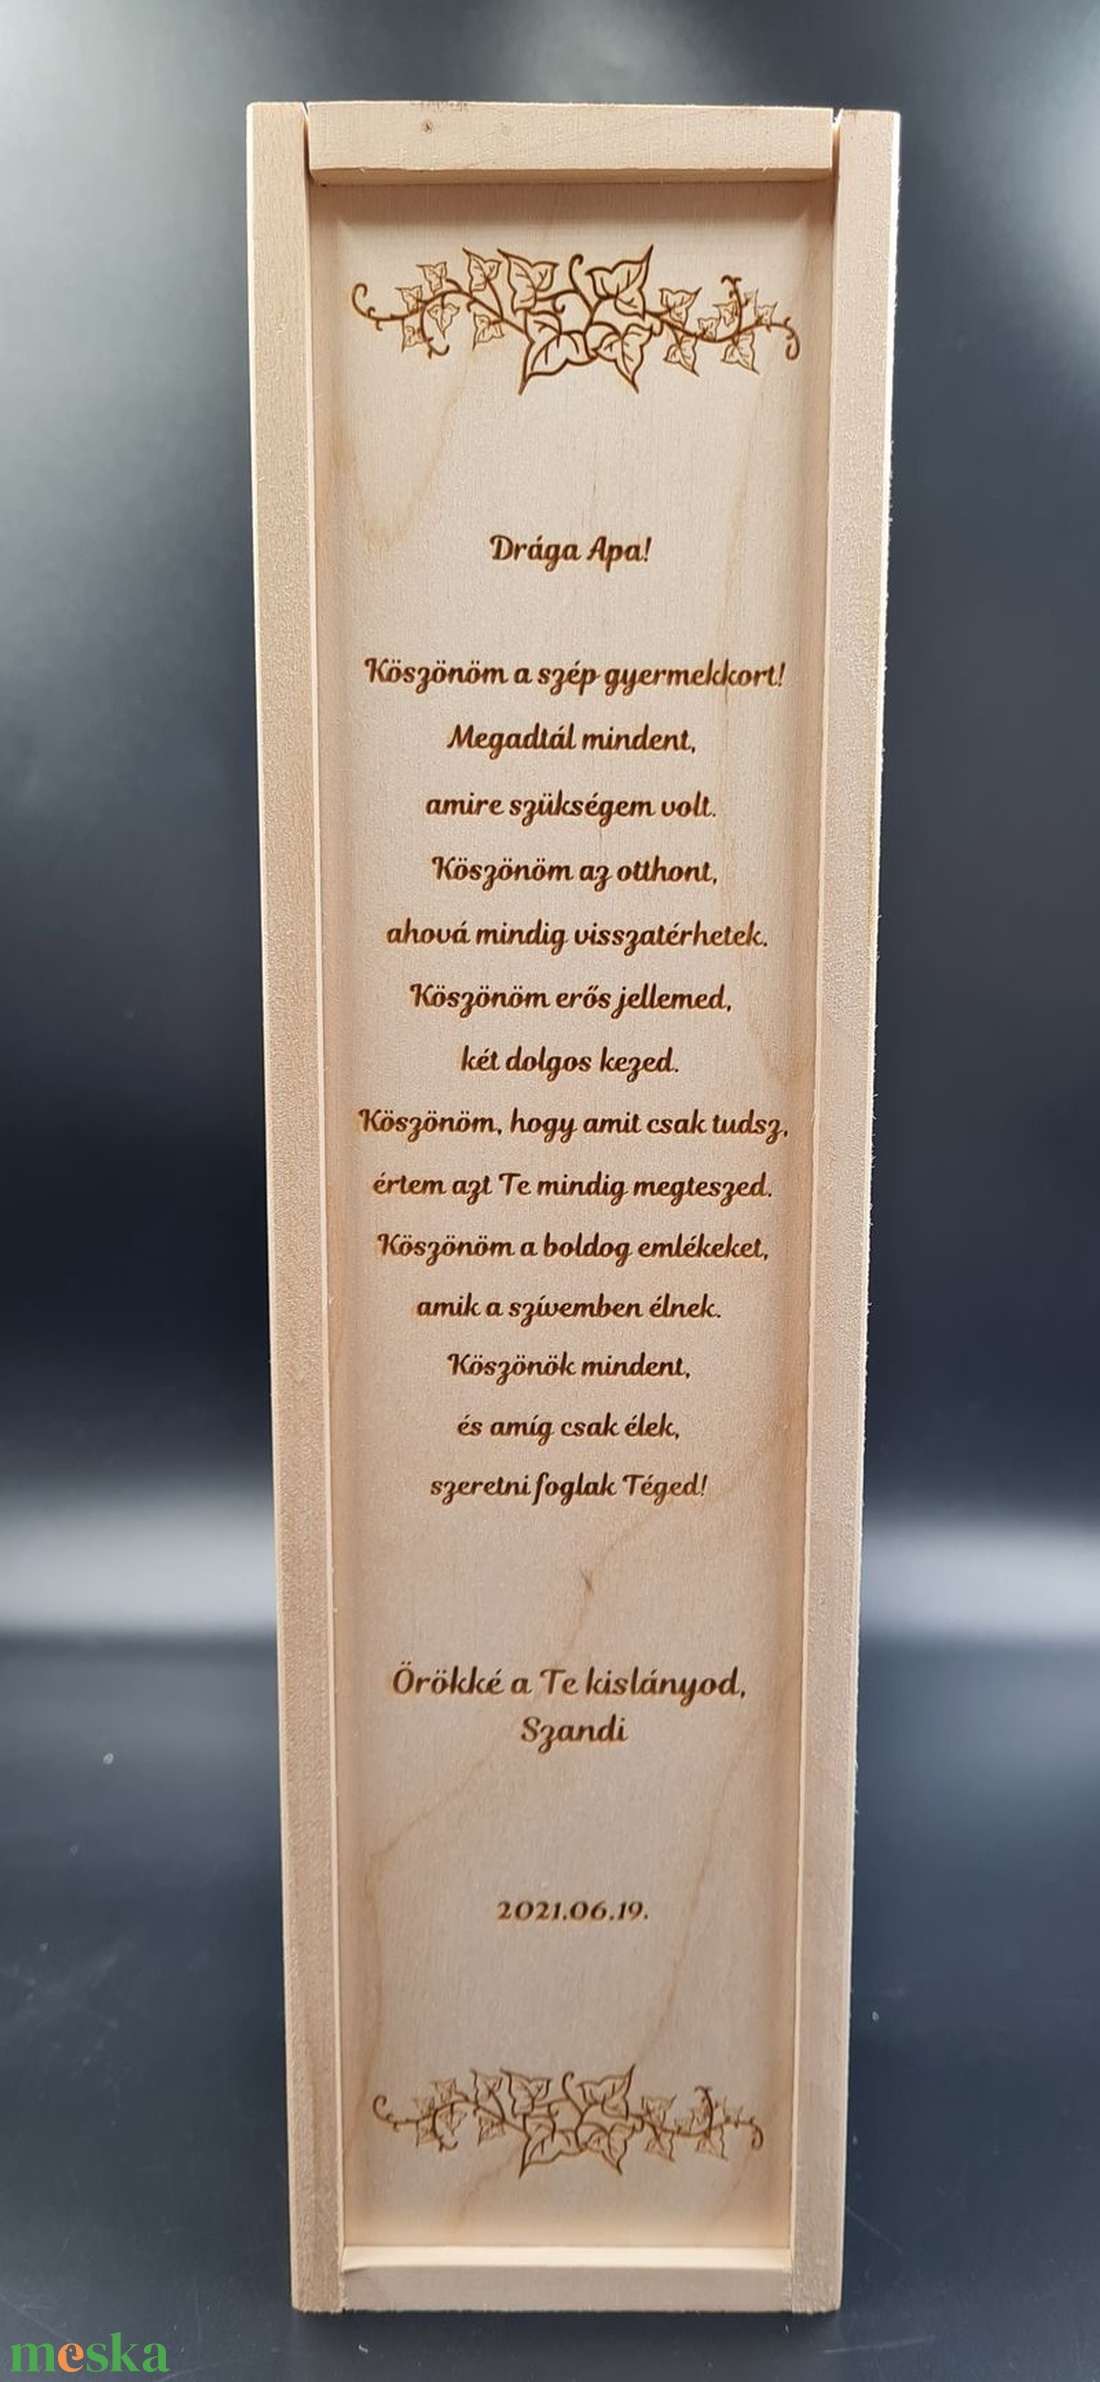 Drága Apa!
Köszönöm a szép gyermekkort!
Megadtál mindent,
amire szükségem volt.
Köszönöm az otthont,
ahová mindig visszatérhetek.
Köszönöm erős jellemed,
két dolgos kezed.
Köszönöm, hogy amit csak tudsz,
értem azt Te mindig megteszed.
Köszönöm a boldog emlékeket,
amik a szívemben élnek.
Köszönök mindent,
és amíg csak élek,
szeretni foglak Téged!
Örökké a Te kislányod,
Szandi
2021.06.19.
meska